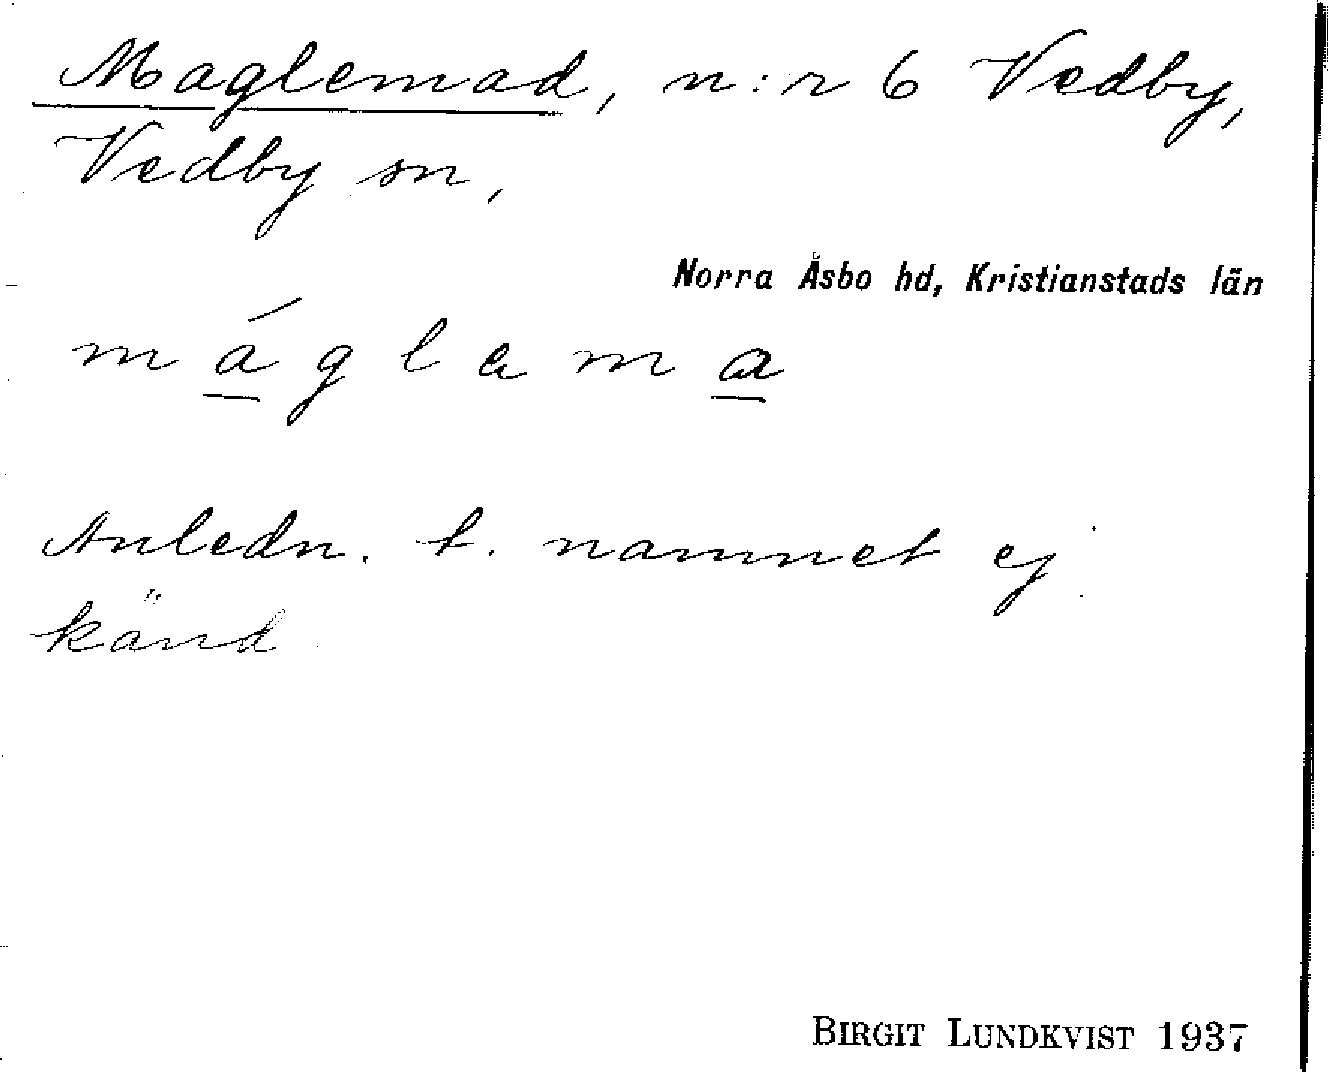 Maglemad, n:r 6 Vedby,
Vedby sn,
Norra Åsbo hd, Kristianstads län
m á g l e m a
Anledn. t. namnet ej
känd
BIRGIT LUNDKVIST 1937